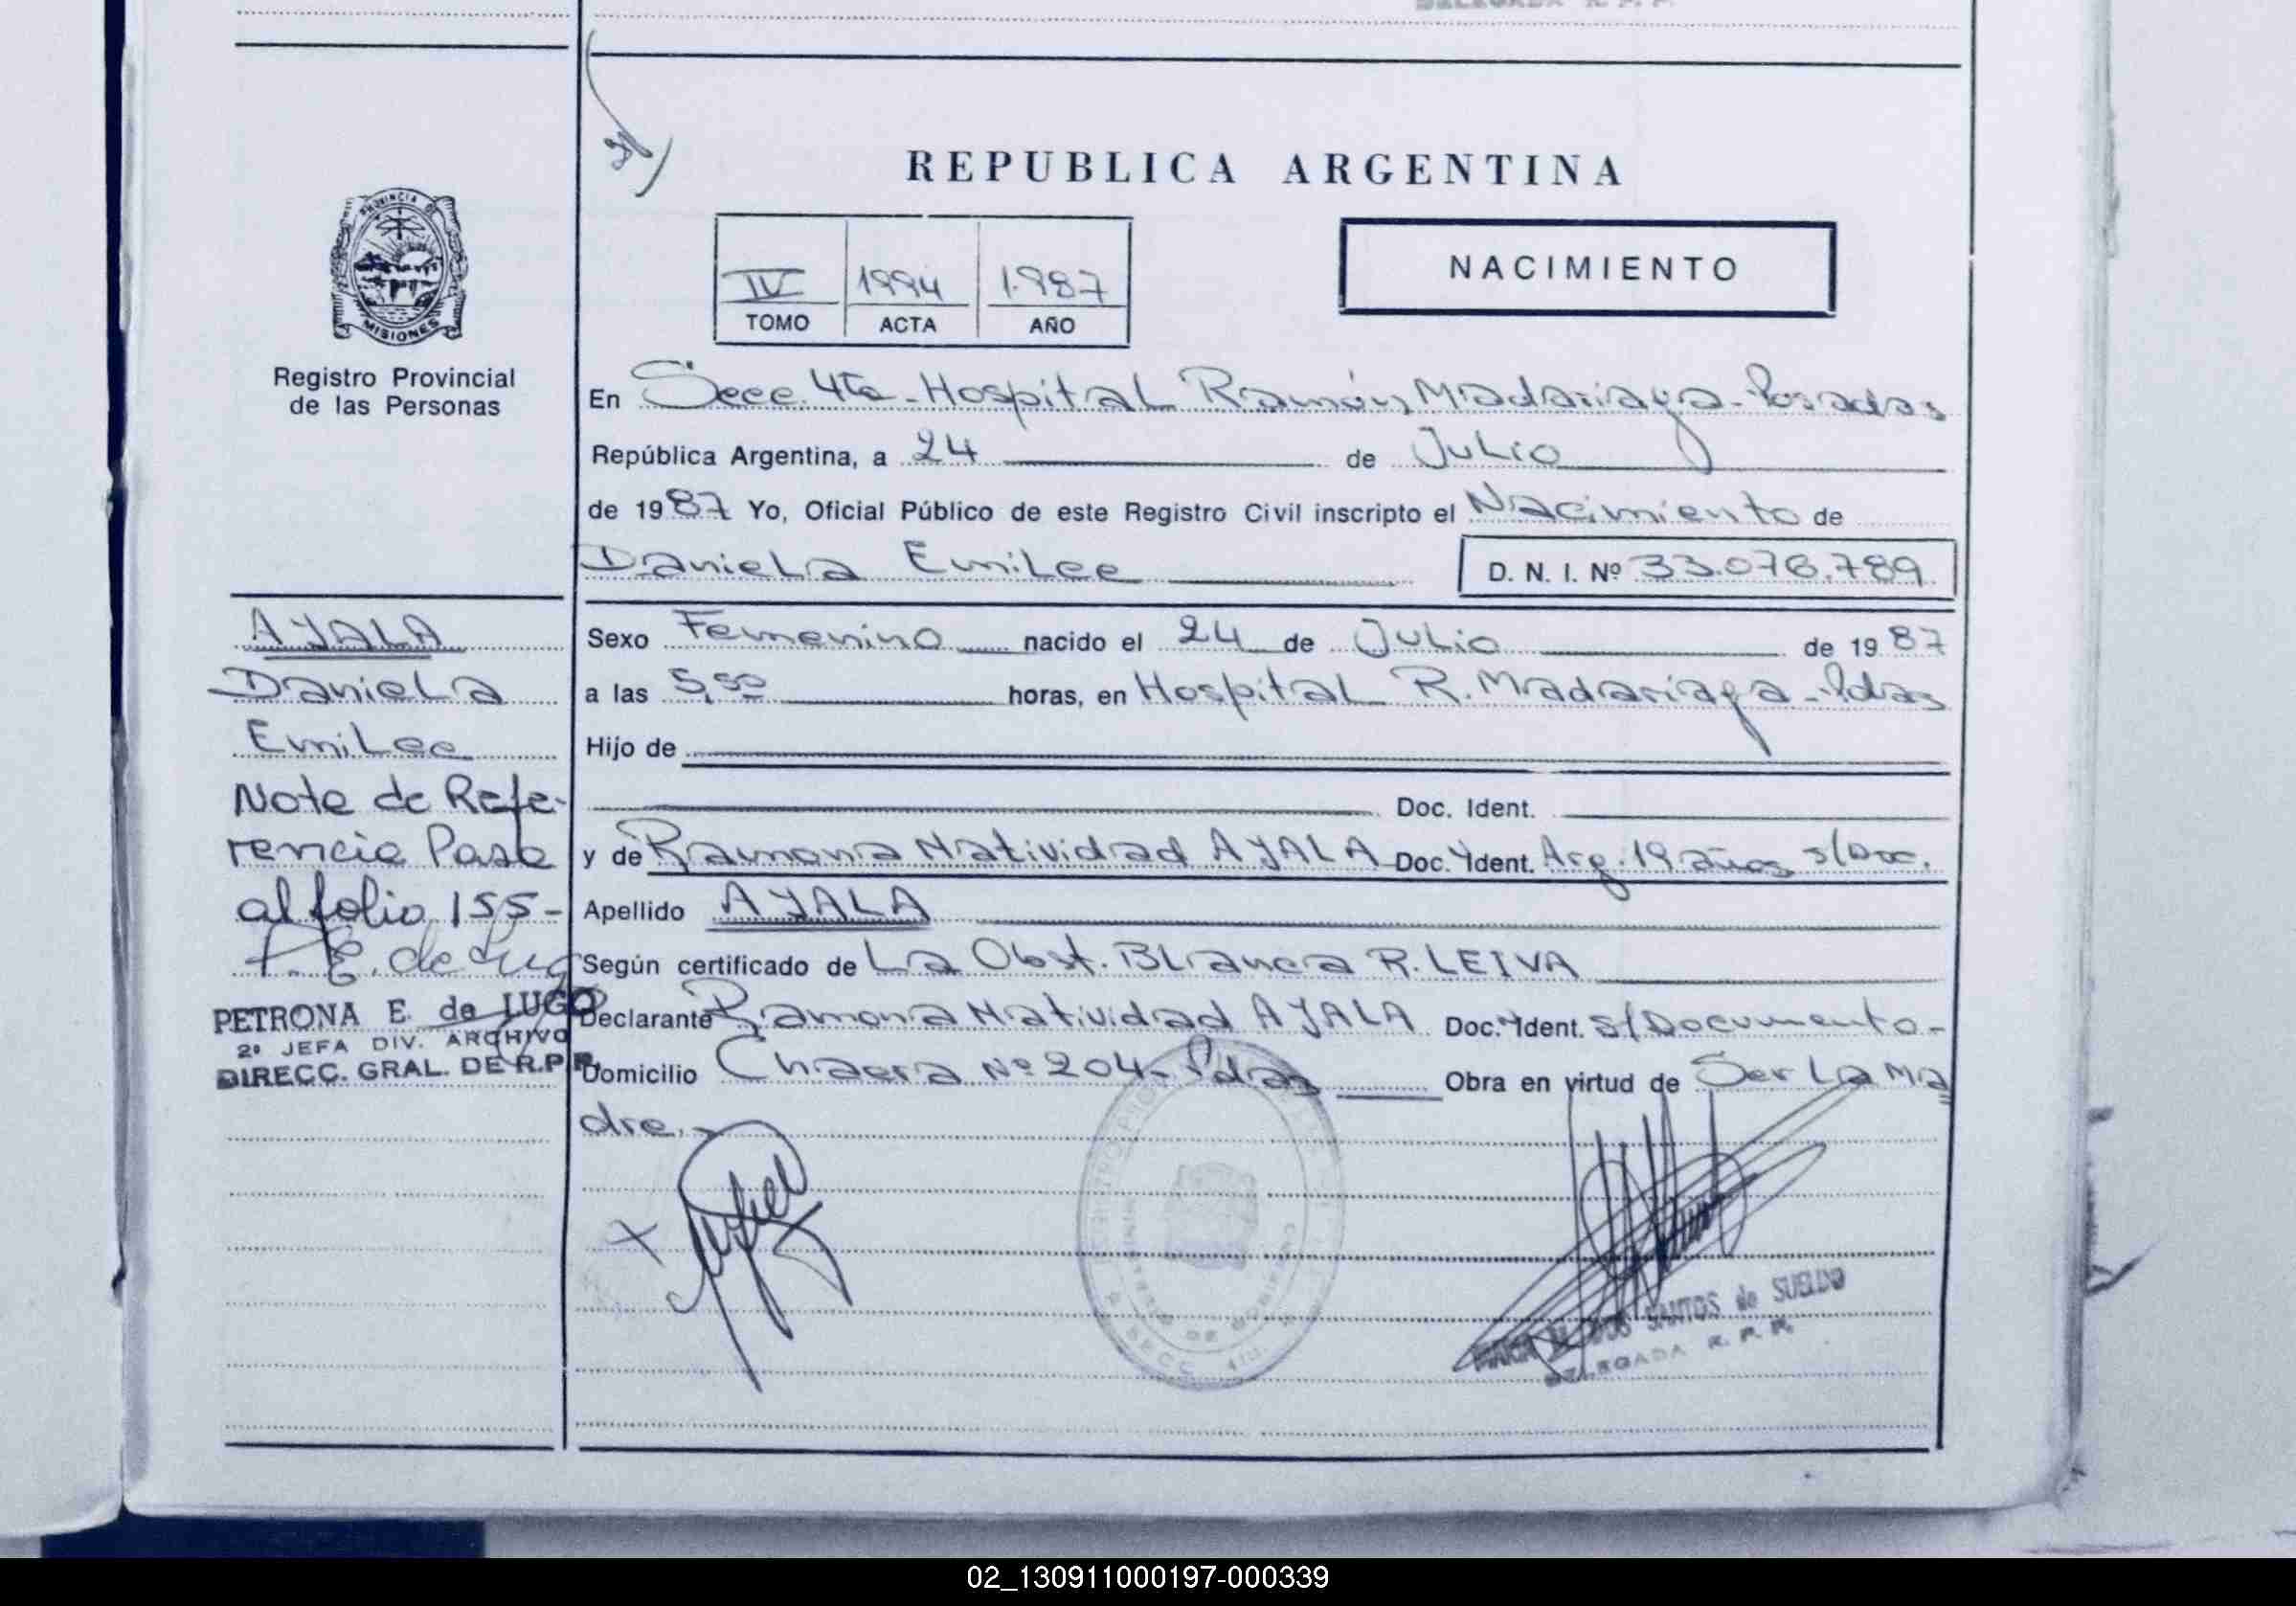 REPUBLICA ARGENTINA
PROVINCIA DE
MISIONES
Registro Provincial
de las Personas
IV 1994 1.987
TOMO ACTA AÑO
NACIMIENTO
En Secc. 4ta - Hospital Ramón Madariaga - Posadas
República Argentina, a 24 de Julio
de 1987 Yo, Oficial Público de este Registro Civil inscripto el Nacimiento de
Daniela Emilce D. N. I. Nº 33.076.789
Sexo Femenino nacido el 24 de Julio de 1987
a las 5,50 horas, en Hospital R. Madariaga - Pdas
Hijo de
Doc. Ident.
y de Ramona Natividad AYALA Doc. Ident. Arg. 19 años s/Doc.
Apellido AYALA
Según certificado de La Obst. Blanca R. LEIVA
Declarante Ramona Natividad AYALA Doc. Ident. s/Documento -
Domicilio Chacra Nº 204 - Pdas Obra en virtud de Ser La Ma
dre. -
AYALA
Daniela
Emilce
Nota de Refe-
rencia Pasa
al folio 155 -
P. E. de Lugo
PETRONA E. de LUGO
2º JEFA DIV. ARCHIVO
DIRECC. GRAL. DE R.P.P.
X
DOS SANTOS de SUELDO
DELEGADA R. P. P.
02_130911000197-000339